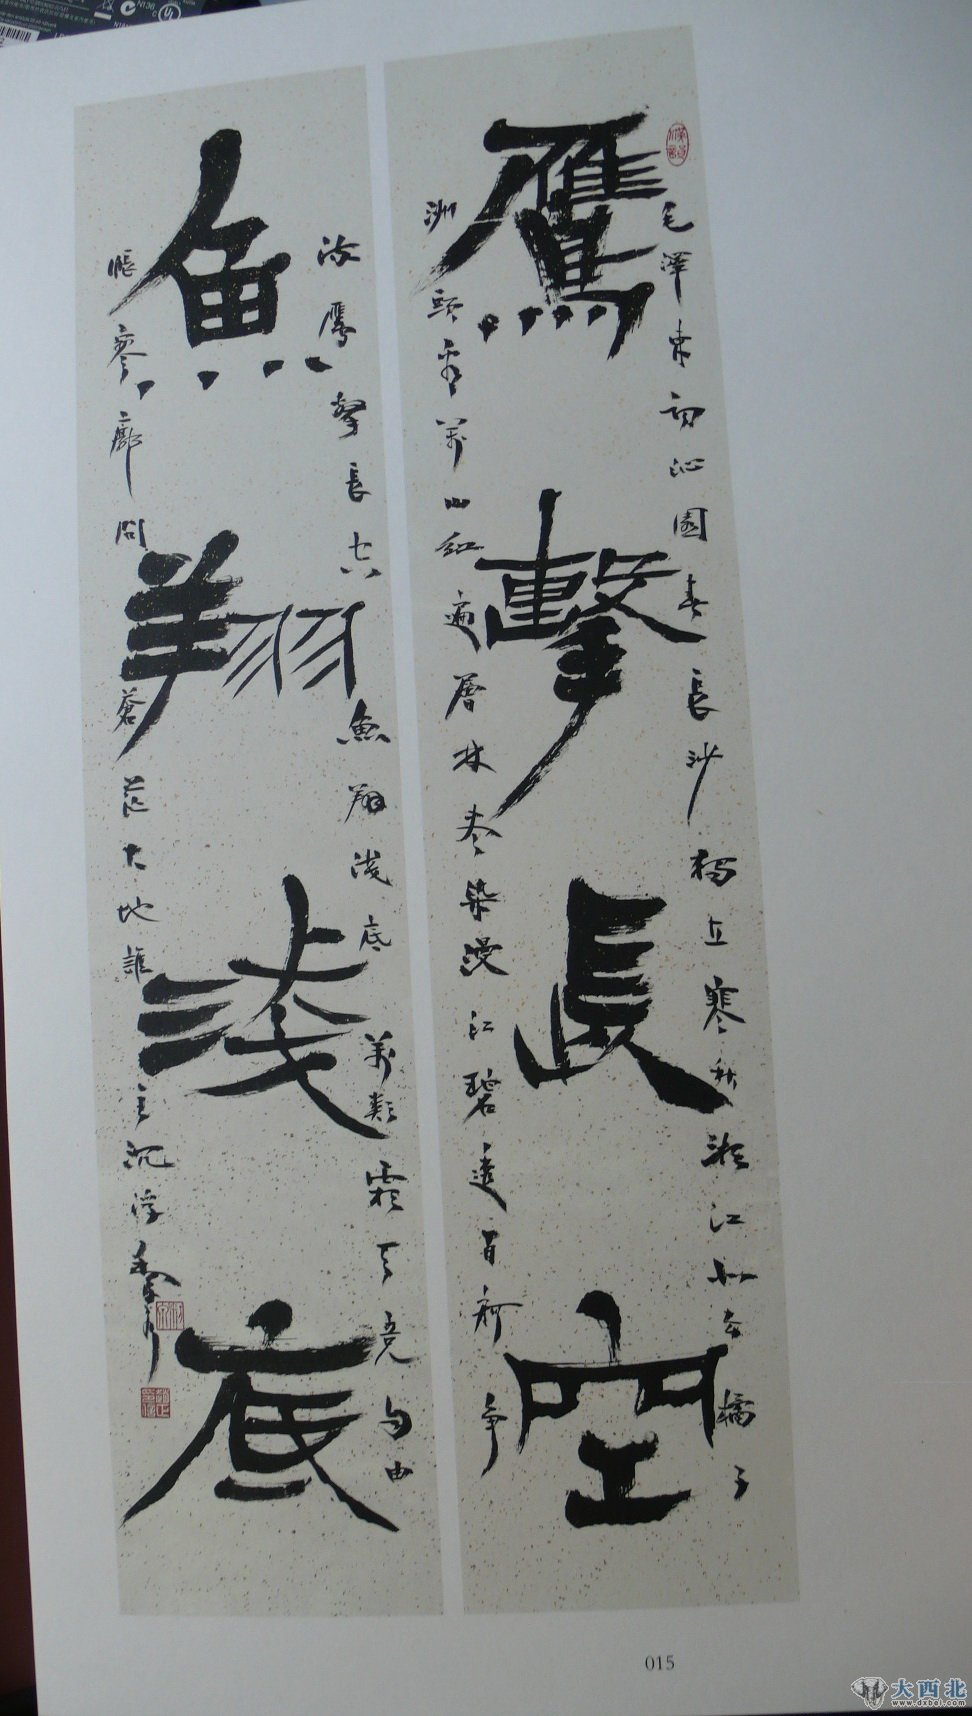 鷹擊長空
毛澤東詞沁園春長沙獨立寒秋湘江北去橘子
洲頭看萬山紅遍層林盡染漫江碧透百舸爭
魚翔淺底
流鷹擊長空魚翔淺底萬類霜天競自由
悵寥廓問蒼茫大地誰主沉浮
015
大西北
www.dxbei.com